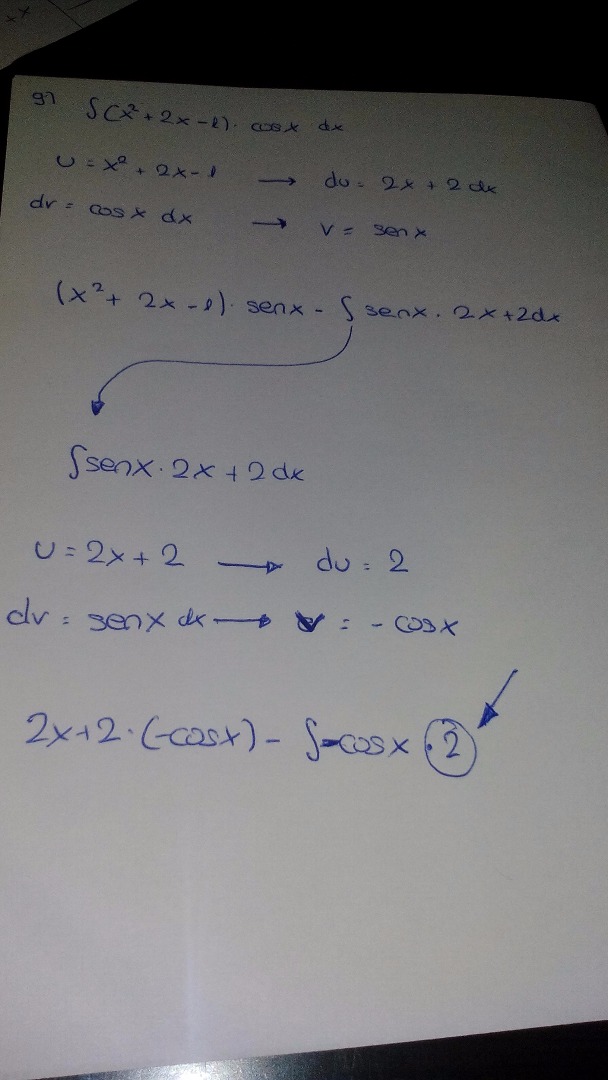 g) ∫(x² + 2x - 1) · cosx dx
u = x² + 2x - 1 → du = 2x + 2 dx
dv = cosx dx → v = senx
(x² + 2x - 1) · senx - ∫ senx · 2x + 2dx
∫senx · 2x + 2 dx
u = 2x + 2 → du = 2
dv = senx dx → v = - cosx
2x + 2 · (-cosx) - ∫-cosx · 2